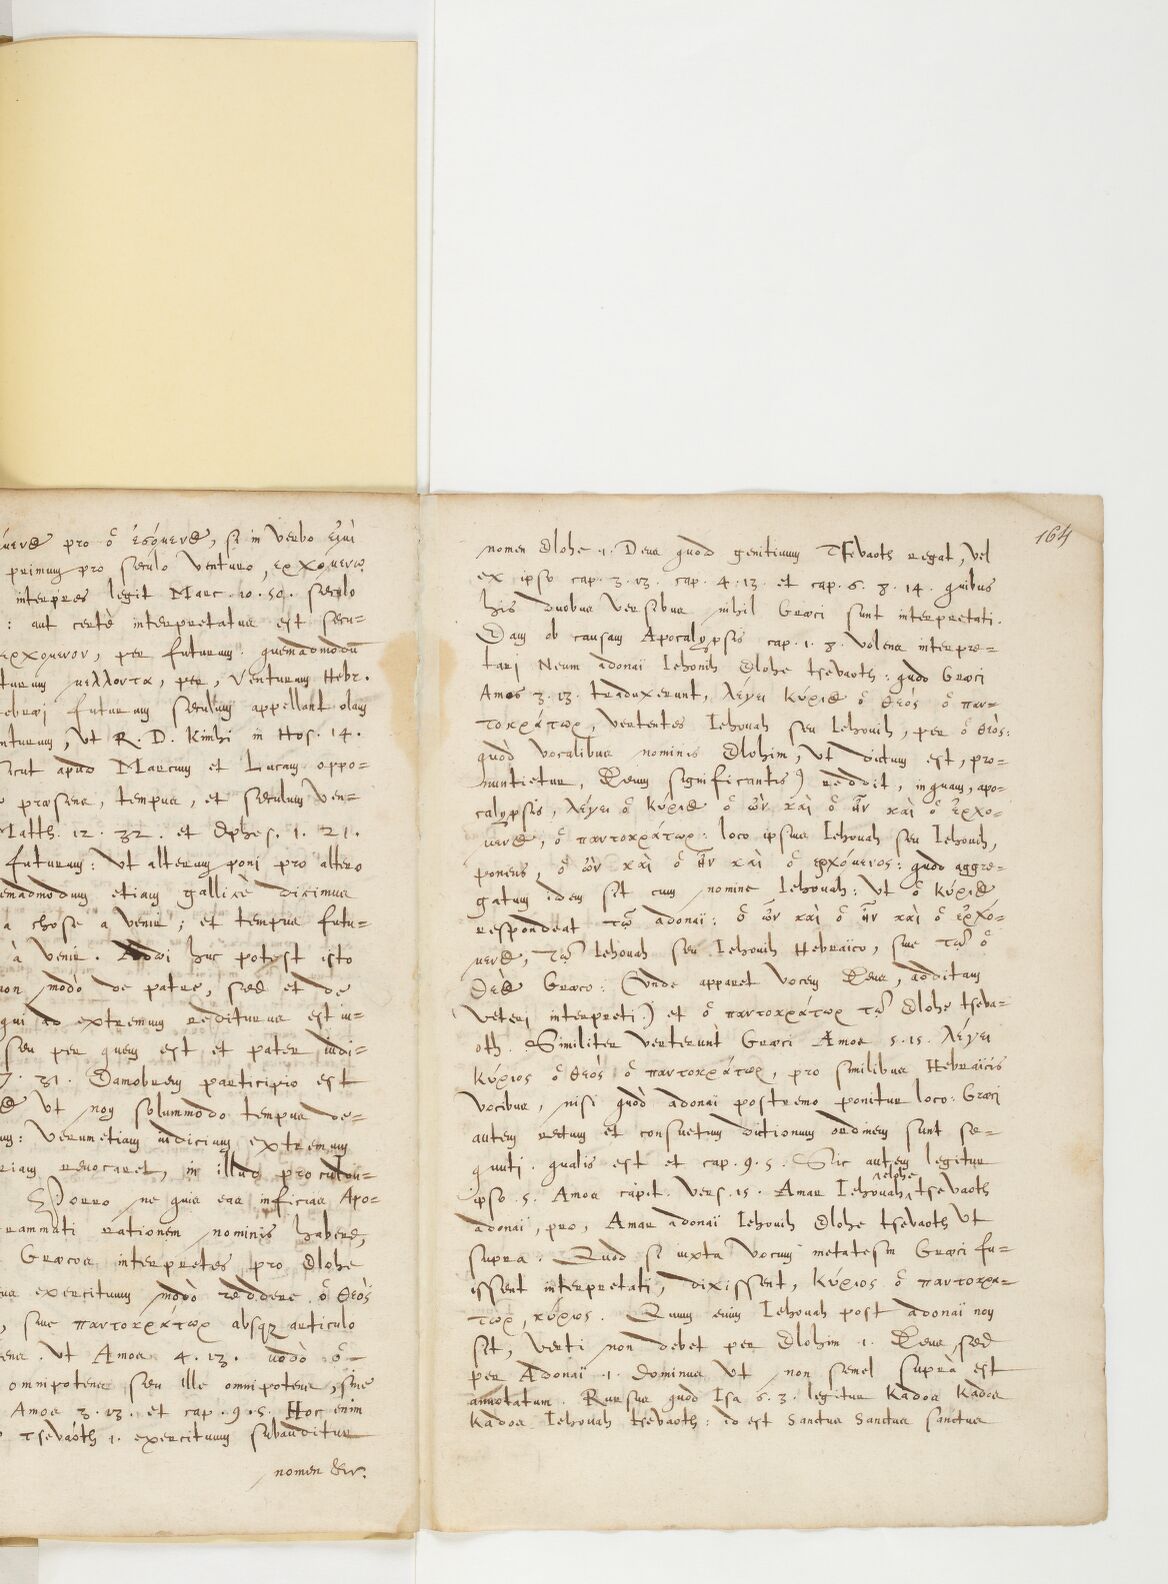 όμενος pro ὁ ἐσόμενος, si in verbo εἰμὶ
primum pro seculo venturo, ερχομενω
interpres legit Marc. 10. 30. seculo
: aut certè interpretatus est secu-
ερχομενον, per futurum. quemadmodū
turum μελλοντα, per, Venturum Hebr.
ebræi futurum seculum appellant olam
nturum, ut R. D. Kimhi in Hos. 14.
icut apud Marcum et Lucam oppo-
præsens, tempus, et seculum ven-
Matth. 12. 32. et Ephes. 1. 21.
futurum: Ut alterum poni pro altero
emadmodum etiam gallicè dicimus
a chose a venir; et tempus futu-
à venir. Addi huc potest isto
non modò de patre, sed et de
qui ad extremum rediturus est iu-
seu per quem est et pater iudi-
7. 31. Quamobrem participio est
ut non solummodo tempus de-
um: verumetiam iudicium extremum
riam revocaret, in illud procudu-
Porro ne quis eas inficias Apo-
rammati rationem nominis habere,
Græcos interpretes pro Elohe
us exercituum modò reddere ὁ θεὸς
, sive παντοκράτωρ absq; articulo
ens. Ut Amos 4. 13. modò ὁ-
omnipotens seu ille omnipotens, sive
Amos 3. 13. et cap. 9. 5. Hoc enim
tsevaóth .i. exercituum subauditur
nomen &c.
164
nomen Elohe .i. Deus quod genitivum Tsevaoth regat, vel
ex ipso cap. 3. 13. cap. 4. 13. et cap. 6. 8. 14. quibus
his duobus versibus nihil Græci sunt interpretati.
Eam ob causam Apocalypsis cap. 1. 8. volens interpre-
tari Neum adonai Iehovih Elohe tsevaoth: quod Græci
Amos 3. 13. traduxerunt, λέγει κύριος ὁ θεός ὁ παν-
τοκράτωρ, vertentes Iehovah seu Iehovih, per ὁ θεὸς:
quòd vocalibus nominis Elohim, ut dictum est, pro-
nuntietur, Deum significantis) reddit, inquam, apo-
calypsis, λέγει ὁ κύριος ὁ ὢν καὶ ὁ ἦν καὶ ὁ ἐρχό-
μενος, ὁ παντοκράτωρ: loco ipsius Iehovah seu Iehovih,
ponens, ὁ ὢν καὶ ὁ ἦν καὶ ὁ ερχόμενος: quod aggre-
gatum idem sit cum nomine Iehovah: ut ὁ κύριος
respondeat τῷ adonai: ὁ ὢν καὶ ὁ ἦν καὶ ὁ ἐρχό-
μενος, τῷ Iehovah seu Iehovih Hebraico, sive τῷ ὁ
θεὸς Græco: (unde apparet vocem Deus, additam
veteri interpreti) et ὁ παντοκράτωρ τῷ Elohe tseva-
oth. Similiter verterunt Græci Amos 5. 15. λέγει
κύριος ὁ θεὸς ὁ παντοκράτωρ, pro similibus Hebraicis
vocibus, nisi quòd adonai postremo ponitur loco: Græci
autem rectum et consuetum dictionum ordinem sunt se-
quuti. qualis est et cap. 9. 5. Sic autem legitur
ipso 5. Amos capit. vers. 15. Amar Iehovah elohe tsevaoth
adonai, pro, Amar adonai Iehovih Elohe tsevaoth ut
supra. Quod si iuxta vocum metatesin Græci fu-
issent interpretati, dixissent, κύριος ὁ παντοκρά-
τωρ, κύριος. Quum enim Iehovah post adonaï non
sit, verti non debet per Elohim .i. Deus, sed
per Adonaï .i. Dominus ut non semel suprà est
annotatum. Rursus quod Isa 6. 3. legitur Kados Kados
Kados Iehovah tsevaoth: id est Sanctus Sanctus sanctus